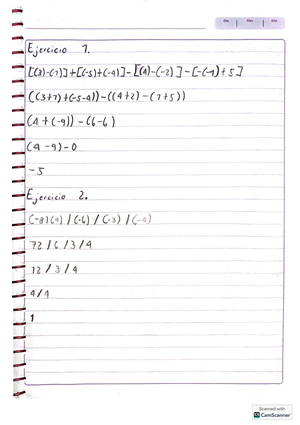 Día Mes Año
Ejercicio 1.
[(3)-(-7)]+[(-5)+(-4)]-[(4)-(-2)]-[-(-1)+5]
((3+7)+(-5-4))-((4+2)-(1+5))
(1+(-9))-(6-6)
(4-9)-0
-5
Ejercicio 2.
(-8)(9)/(-6)/(-3)/(-4)
72/6/3/4
12/3/4
4/4
1
Scanned with
CS CamScanner